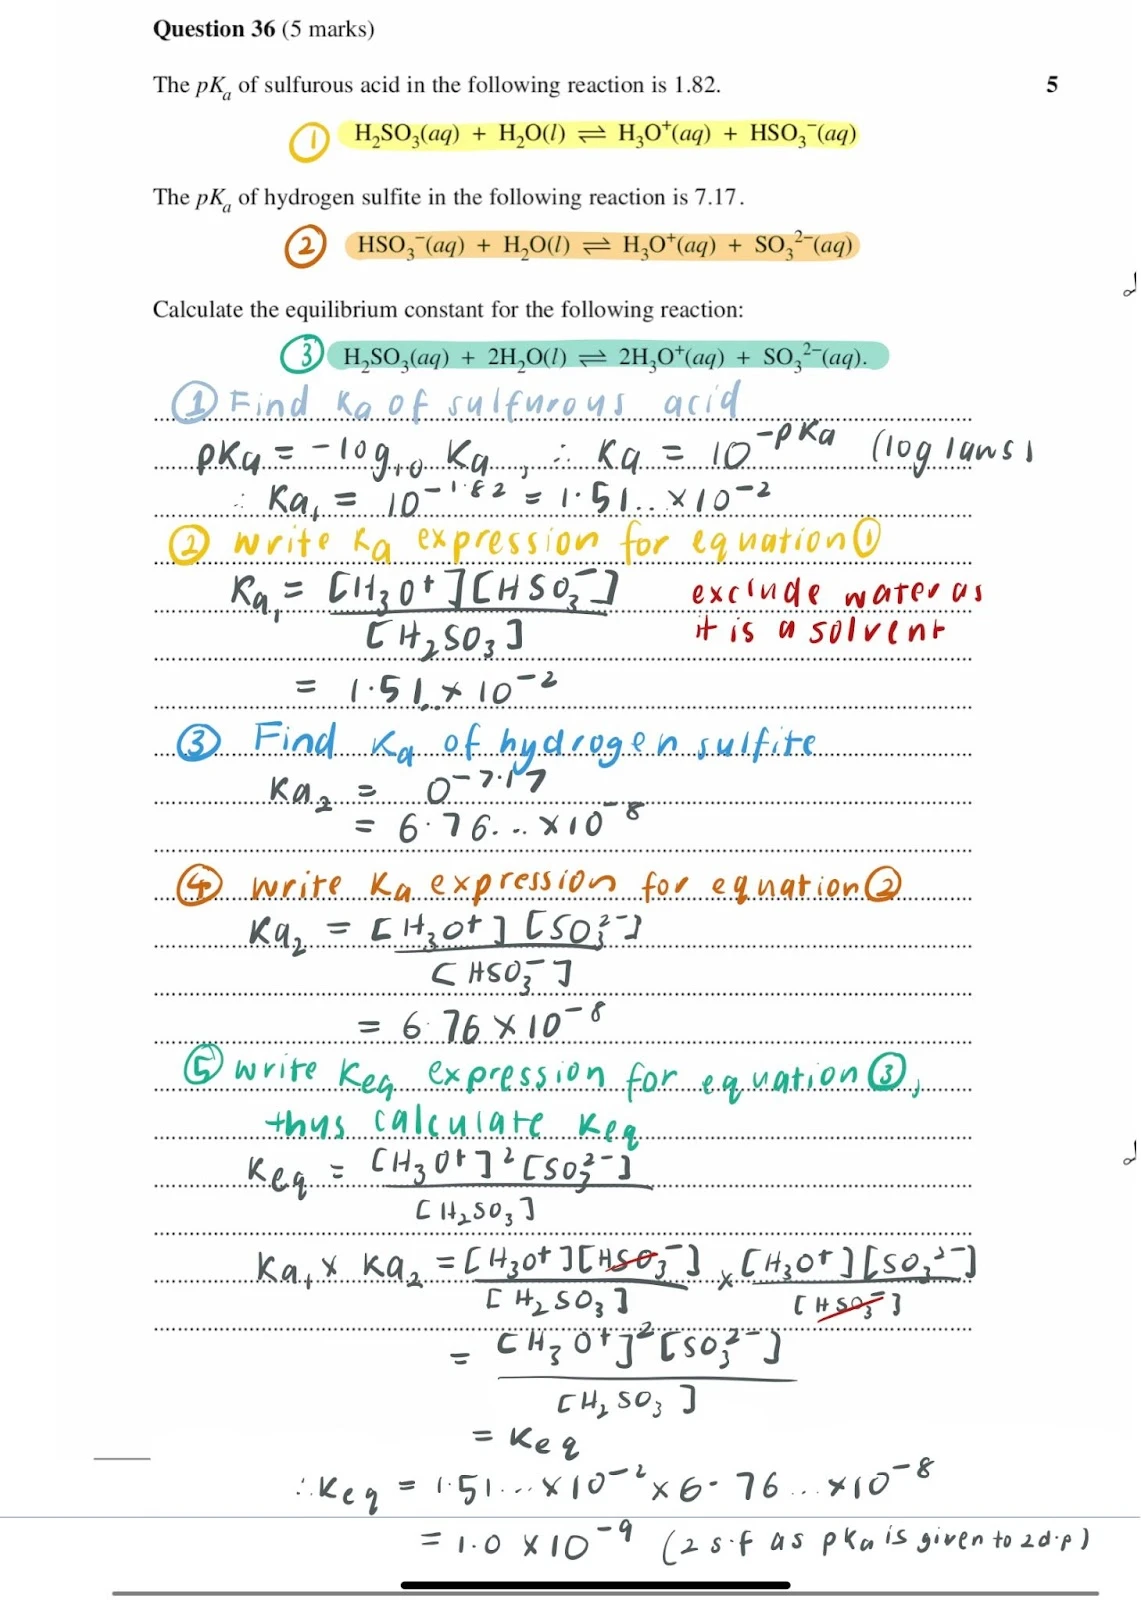 Question 36 (5 marks)
The pKa of sulfurous acid in the following reaction is 1.82. 5
① H₂SO₃(aq) + H₂O(l) ⇌ H₃O⁺(aq) + HSO₃⁻(aq)
The pKa of hydrogen sulfite in the following reaction is 7.17.
② HSO₃⁻(aq) + H₂O(l) ⇌ H₃O⁺(aq) + SO₃²⁻(aq)
Calculate the equilibrium constant for the following reaction:
③ H₂SO₃(aq) + 2H₂O(l) ⇌ 2H₃O⁺(aq) + SO₃²⁻(aq).
① Find Ka of sulfurous acid
pKa = -log₁₀ Ka, ∴ Ka = 10^-pKa (log laws)
∴ Ka₁ = 10^-1.82 = 1.51.. × 10⁻²
② write Ka expression for equation ①
Ka₁ = [H₃O⁺][HSO₃⁻] exclude water as
[H₂SO₃] it is a solvent
= 1.51.. × 10⁻²
③ Find Ka of hydrogen sulfite
Ka₂ = 0^-7.17
= 6.76... × 10⁻⁸
④ write Ka expression for equation ②
Ka₂ = [H₃O⁺][SO₃²⁻]
[HSO₃⁻]
= 6.76 × 10⁻⁸
⑤ write Keq expression for equation ③,
thus calculate Keq
Keq = [H₃O⁺]²[SO₃²⁻]
[H₂SO₃]
Ka₁ × Ka₂ = [H₃O⁺][HSO₃⁻] × [H₃O⁺][SO₃²⁻]
[H₂SO₃] [HSO₃⁻]
= [H₃O⁺]²[SO₃²⁻]
[H₂SO₃]
= Keq
∴ Keq = 1.51... × 10⁻² × 6.76... × 10⁻⁸
= 1.0 × 10⁻⁹ (2 s.f as pKa is given to 2d.p)